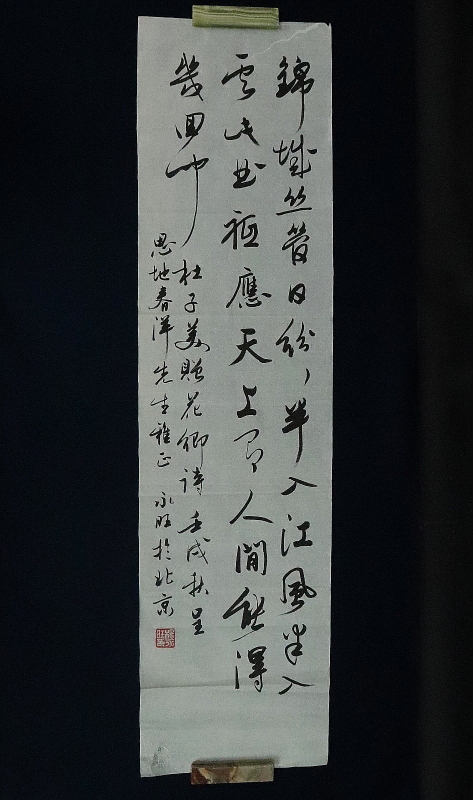 錦城丝管日紛紛半入江風半入
云此曲祗應天上有人間能得
幾回聞
杜子美贈花卿詩壬戌秋呈
思地春洋先生雅正 永旺於北京